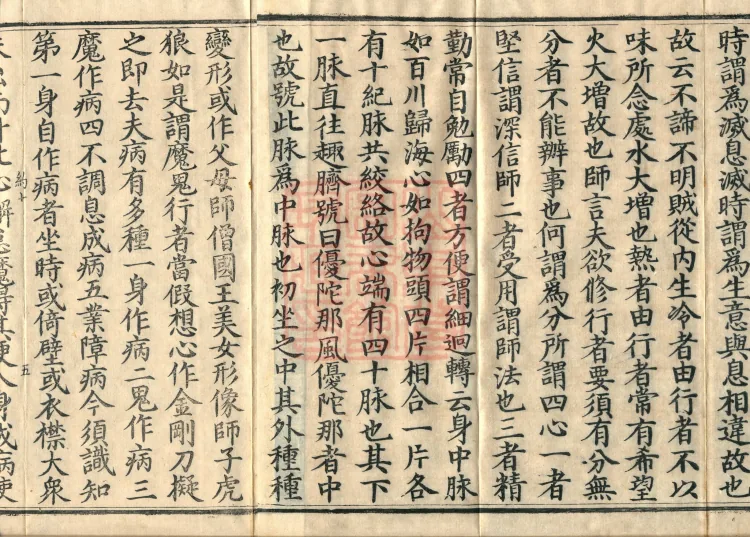 時謂爲滅息滅時謂爲生意與息相違故也
故云不諦不明賊從內生冷者由行者不以
味所念處水大增也熱者由行者常有希望
火大增故也師言夫欲修行者要須有分無
分者不能辦事也何謂爲分所謂四心一者
堅信謂深信師二者受用謂師法也三者精
勤常自勉勵四者方便謂細迴轉云身中脉
如百川歸海心如拘物頭四片相合一片各
有十紀脉共絞絡故心端有四十脉也其下
一脉直往趣臍號曰優陀那風優陀那者中
也故號此脉爲中脉也初坐之中其外種種
變形或作父母師僧國王美女形像師子虎
狼如是謂魔鬼行者當假想心作金剛刀擬
之即去夫病有多種一身作病二鬼作病三
魔作病四不調息成病五業障病今須識知
第一身自作病者坐時或倚壁或衣襟大衆
五